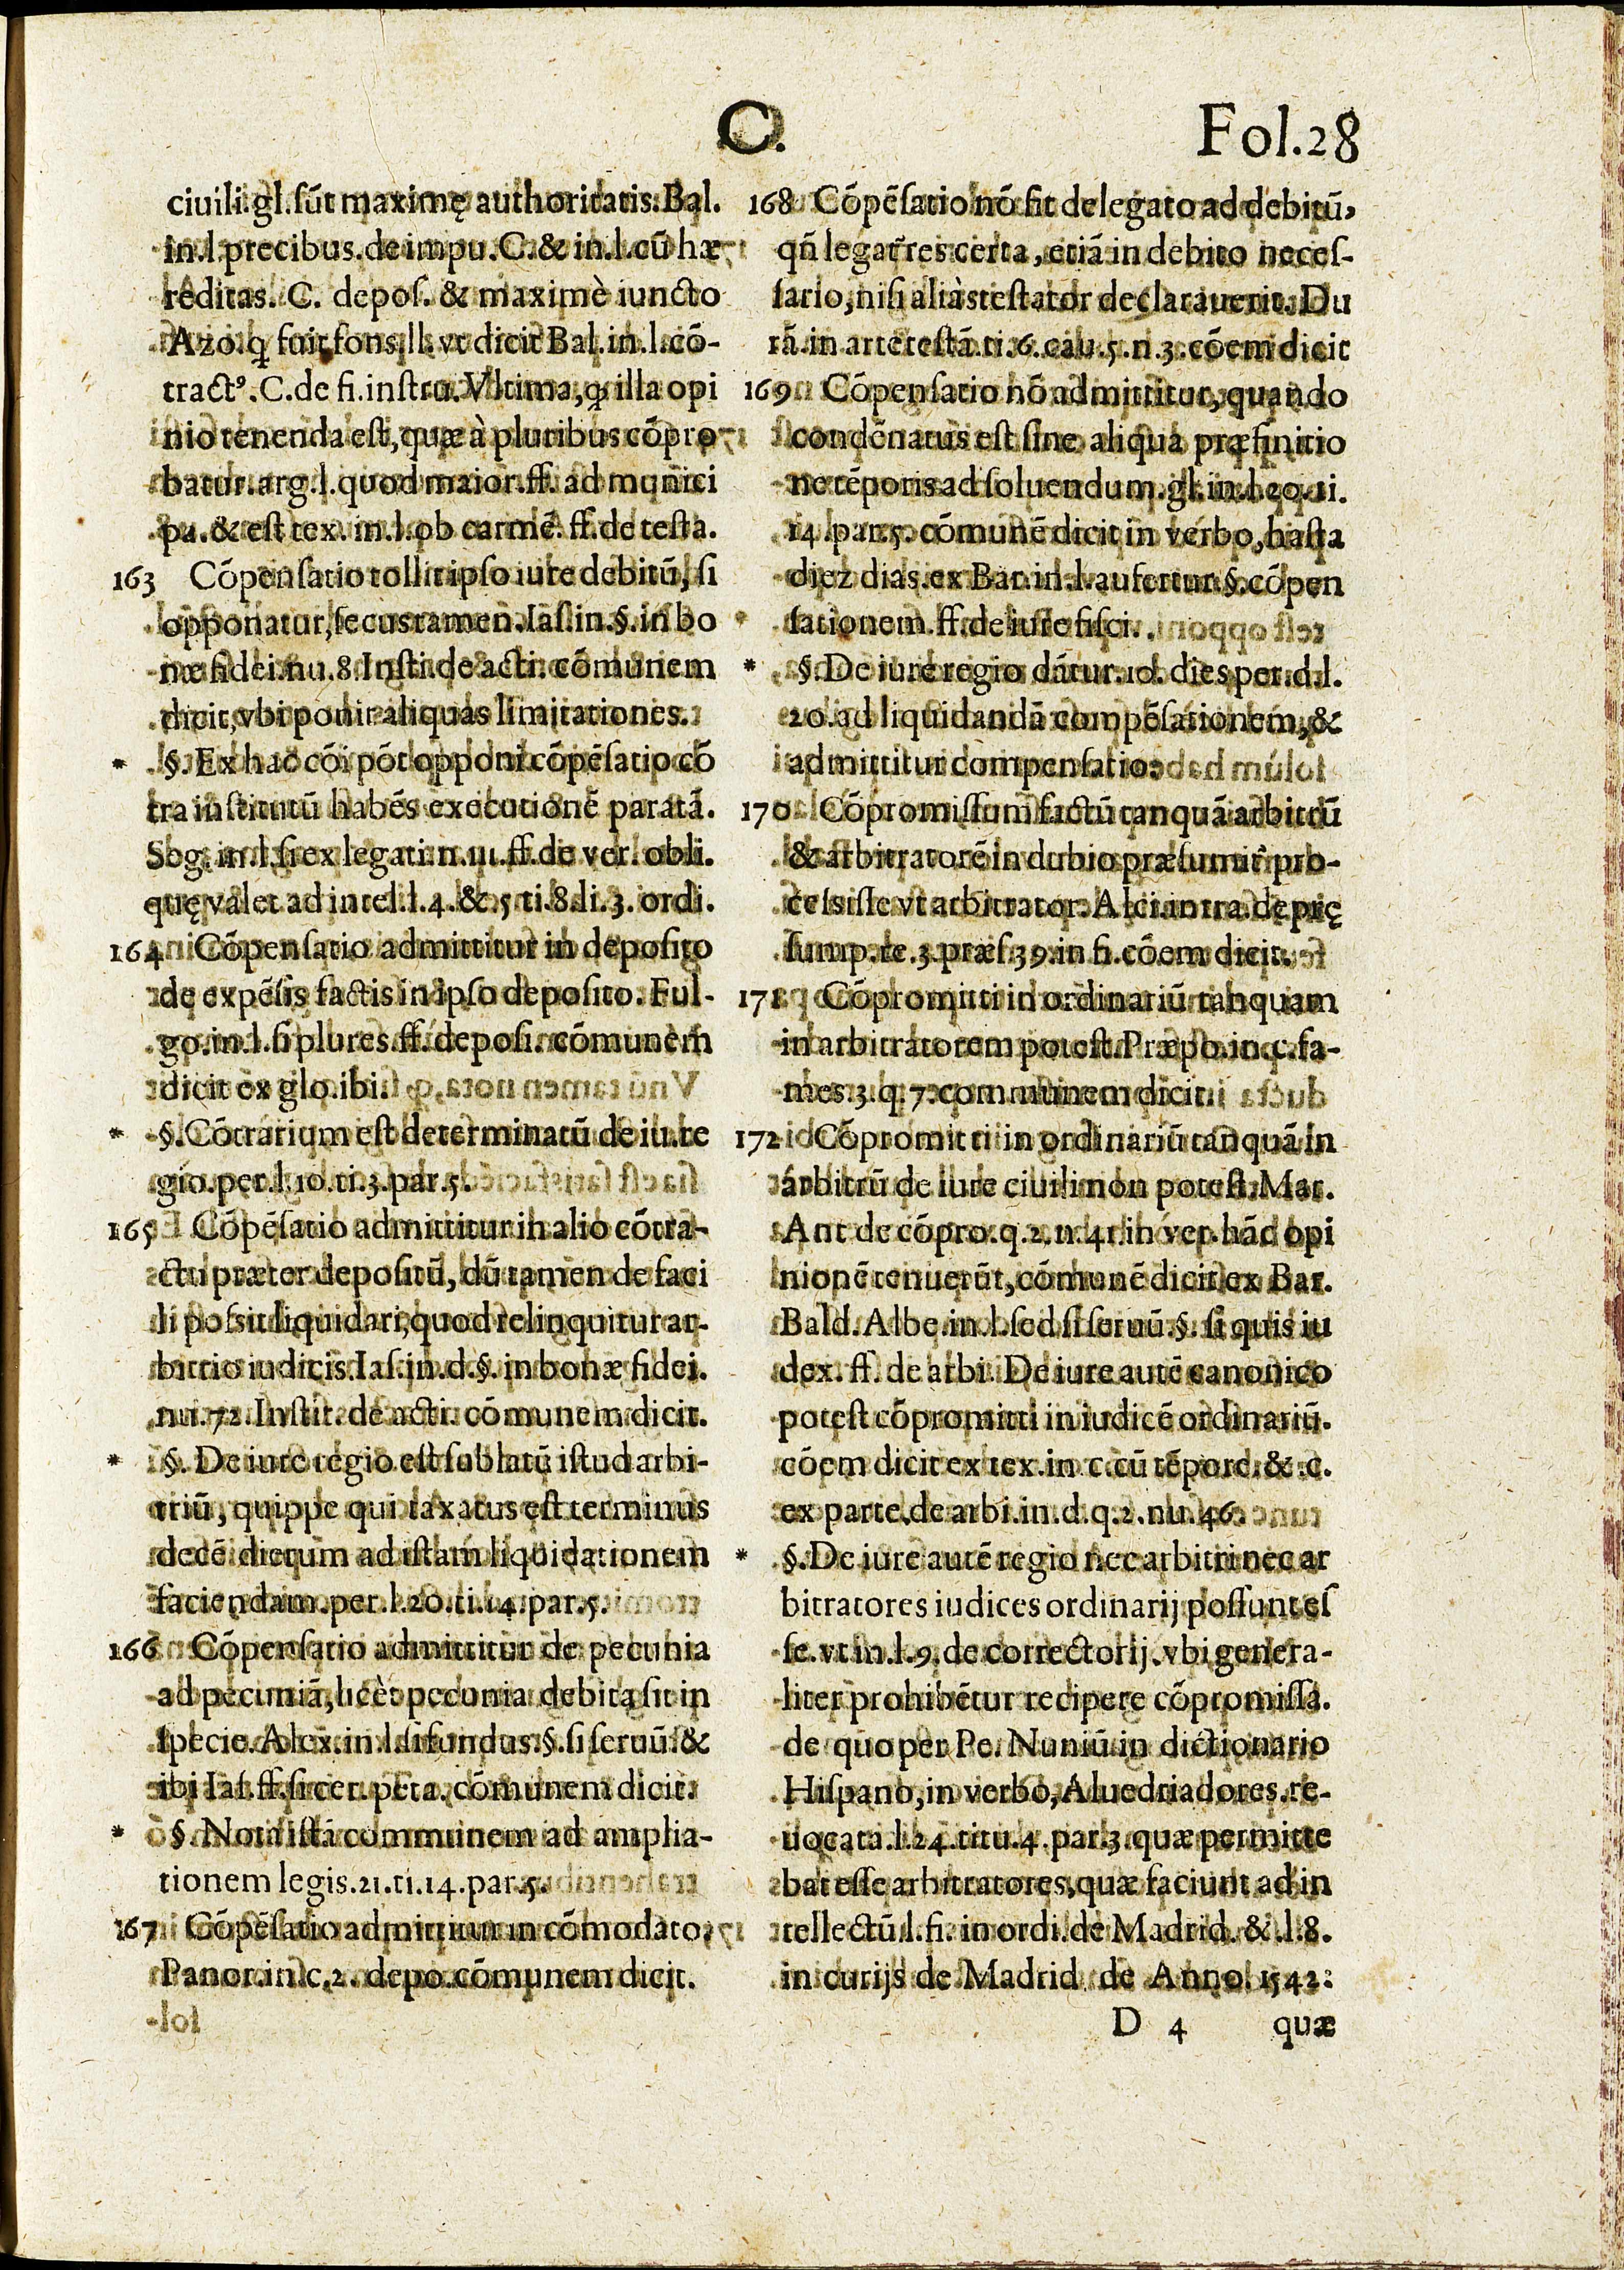 C. Fol.28
ciuili.gl.sūt maximę authoritatis.Bal.
in.l.precibus.de impu.C.& in.l.cū hæ
reditas. C. depos. & maximè iuncto
Azo.ꝗ fuit fons.ll. vt dicit Bal.in.l.cō-
tractꝰ.C.de fi.instru. Vltima,ꝙ illa opi
nio tenenda est, quæ à pluribus cōpro
batur.arg.l.quod maior.ff. ad munici
pa. & est tex. in.l.ob carmē. ff.de testa.
163 Cōpensatio tollit ipso iure debitū, si
opponatur, secus tamen. Ias.in.§.in bo
næ fidei.nu.8. Insti.de acti. cōmunem
dicit, vbi ponit aliquas limitationes.
* §. Ex hac cōi pōt opponi cōpēsatio cō
tra institutū habēs executionē paratā.
Sog. in.l.si ex legati.n.iii.ff.de ver. obli.
quę valet ad intel.l.4.&.5 ti.8.li.3. ordi.
164 Cōpensatio admittitur in deposito
de expēsis factis in ipso deposito. Ful-
go.in.l.si plures.ff.deposi. cōmunem
dicit ex glo.ibi.
* §. Cōtrarium est determinatū de iu.re
gio.per.l.10.ti.3.par.5.
165 Cōpēsatio admittitur in alio cōtra-
ctu præter depositū, dū tamen de faci
li possit liquidari, quod relinquitur ar-
bitrio iudicis. Ias.in.d.§. in bonæ fidei.
nu.72. Instit. de acti. cōmunem dicit.
* §. De iure regio est sublatū istud arbi-
triū, quippe qui taxatus est terminus
decē dierum ad istam liquidationem
faciendam.per.l.20.ti.14.par.5.
166 Cōpensatio admittitur de pecunia
ad pecuniā, licèt pecunia debita sit in
specie. Alex.in.l.si fundus.§.si seruū. &
ibi Ias.ff.si cer. peta. cōmunem dicit.
* §. Nota istā communem ad amplia-
tionem legis.21.ti.14.par.5.
167 Cōpēsatio admittitur in cōmodato.
Panor.in.c.2. depo.cōmunem dicit.
168 Cōpēsatio nō fit de legato ad debitū,
qñ legat̄ res certa, etiā in debito neces-
sario, nisi aliàs testator declarauerit. Du
rā.in arte testā.ti.6.cau.5.n.3.cōem dicit
169 Cōpensatio nō admittitur, quando
condēnatus est sine aliqua præfinitio
ne tēporis ad soluendum.gl.in.l.20.ti.
14.par.5. cōmunē dicit in verbo, hasta
diez dias.ex Bar.in.l.aufertur.§.cōpen
sationem.ff.de iure fisci.
* §.De iure regio dātur.10. dies per.d.l.
20.ad liquidandā compēsationem, &
admittitur compensatio.
170 Cōpromissum factū tanquā arbitrū
& arbitratorē in dubio præsumit̄ pro-
cessisse vt arbitrator. Alci.in tra.de prę
sump.re.3.præs.39.in fi. cōem dicit.
171 Cōpromitti in ordinariū tanquam
in arbitratorem potest. Præpo.in.c.fa-
mes.3.q.7.communem dicit.
172 Cōpromitti in ordinariū tanquā in
arbitrū de iure ciuili non potest. Mar.
Ant de cōpro.q.2.n.41.in ver.hāc opi
nionē tenuerūt, cōmunē dicit ex Bar.
Bald. Albe.in.l.sed si seruū.§. si quis iu
dex. ff. de arbi. De iure autē canonico
potest cōpromitti in iudicē ordinariū.
cōem dicit ex tex.in c.cū tēpore.& .c.
ex parte.de arbi.in.d.q.2.nu.46.
* §.De iure autē regio nec arbitri nec ar
bitratores iudices ordinarij possunt es
se.vt in.l.9.de correctorij.vbi genera-
liter prohibētur recipere cōpromissa.
de quo per Pe. Nuniū in dictionario
Hispano, in verbo, Aluedriadores. re-
uocata.l.24.titu.4. par.3.quæ permitte
bat esse arbitratores, quæ faciunt ad in
tellectū.l.fi. in ordi.de Madrid. & .l.8.
in curijs de Madrid de Anno.1542.
D 4 quæ